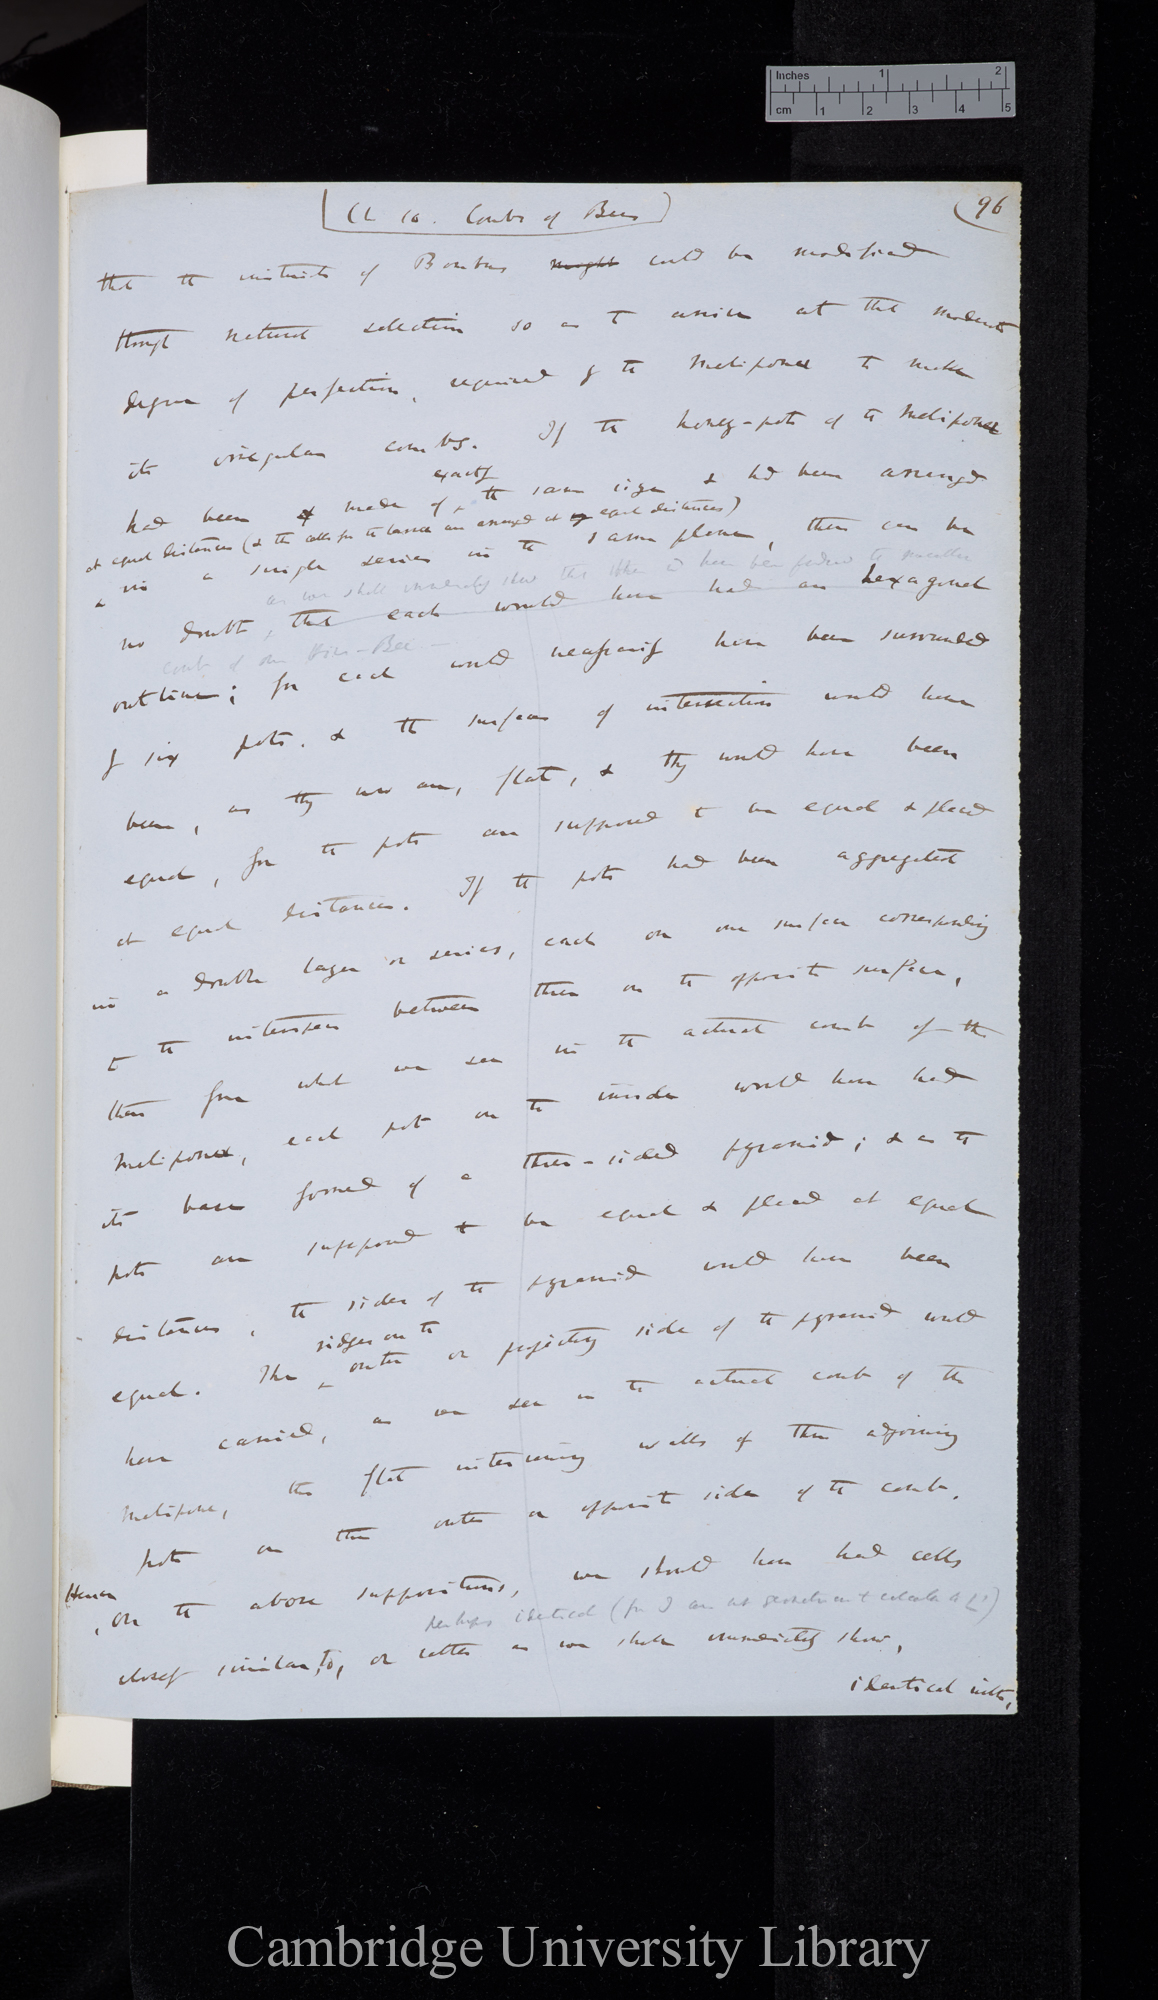 Inches 1 2
cm 1 2 3 4 5
Ch 10. Combs of Bees
96
that the instincts of Bombus might could be modified
through natural selection so as to arrive at the moderate
degree of perfection, required by the Melipona to make
its irregular combs. If the honey-pots of the Melipona
exactly
had been made of the same size & had been arranged
at equal distances (& the cells for the larvæ are arranged at equal distances)
in a single series in the same plane, there can be
as we shall immediately show that
no doubt, that each would have had an hexagonal
comb of our Hive-Bee
outline; for each would necessarily have been surrounded
by six pots, & the surfaces of intersection would have
been, as they now are, flat, & they would have been
equal, for the pots are supposed to be equal & placed
at equal distances. If the pots had been aggregated
in a double layer or series, each on one surface corresponding
to the intersection between three on the opposite surface,
then from what we see in the actual comb of the
Melipona, each pot on the inside would have had
its base formed of a three-sided pyramid; & as the
pots are supposed to be equal & placed at equal
distances, the sides of the pyramid would have been
ridges on the
equal. The outer or projecting side of the pyramid would
have carried, as we see in the actual comb of the
Melipona, the flat intervening walls of three adjoining
pots on the outer or opposite side of the comb.
Hence
, on the above suppositions, we should have had cells
perhaps identical (for I am not geometer enough to calculate it)
closely similar to, or rather as we shall immediately show,
identical with,
Cambridge University Library